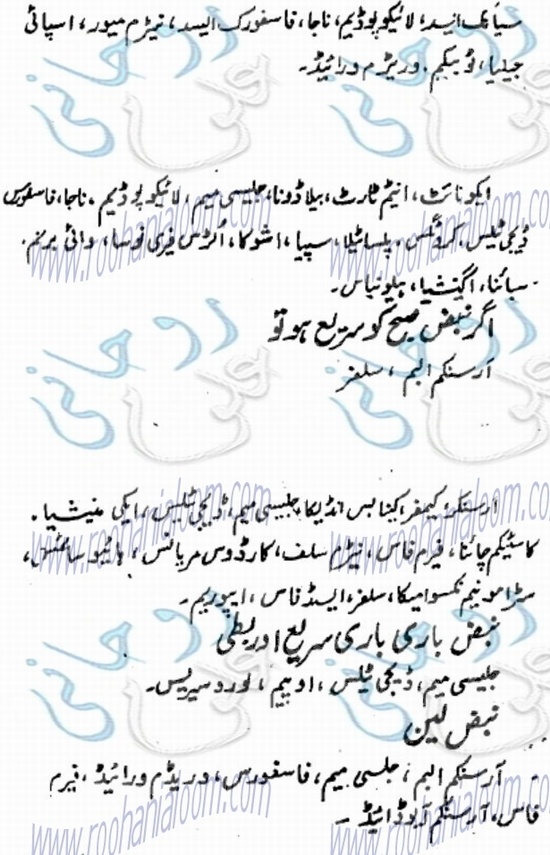 سیانک ایسڈ، لائیکوپوڈیم، ناجا، فاسفورک ایسڈ، نیٹرم میور، اسپائی
جیلیا، ڈبیکم، وریٹرم ورائیڈ۔
ایکونائٹ، انٹیم ٹارٹ، بیلاڈونا، جلیسی میم، لائیکوپوڈیم، ناجا، فاسفورس
ڈیجی ٹیلس، کروٹلس، پلساٹیلا، سیپیا، اشوکا، الٹرس فیری نوسا، وائی برنم،
سبائنا، اگنیشیا، ہیلونیاس۔
اگر نبض صبح کو سریع ہو تو
آرسنکم البم، سلفر
آرسنک، کیمفر، کینابس انڈیکا، جلیسی میم، ڈیجی ٹیلس، ایکی نیشیا،
کاسٹیکم چائنا، فیرم فاس، نیٹرم سلف، کارڈوس مریانس، ہائیوسائمس،
سٹرامونیم نکسوامیکا، سلفر، ایسڈ فاس، ایپوریم۔
نبض باری باری سریع اور بطی
جلیسی میم، ڈیجی ٹیلس، اوپیم، لوروسیریس۔
نبض لین
آرسنکم البم، جلسی میم، فاسفورس، وریٹرم ورائیڈ، فیرم
فاس، آرسنکم آیوڈائیڈ۔
روحانی علوم
www.roohanialoom.com